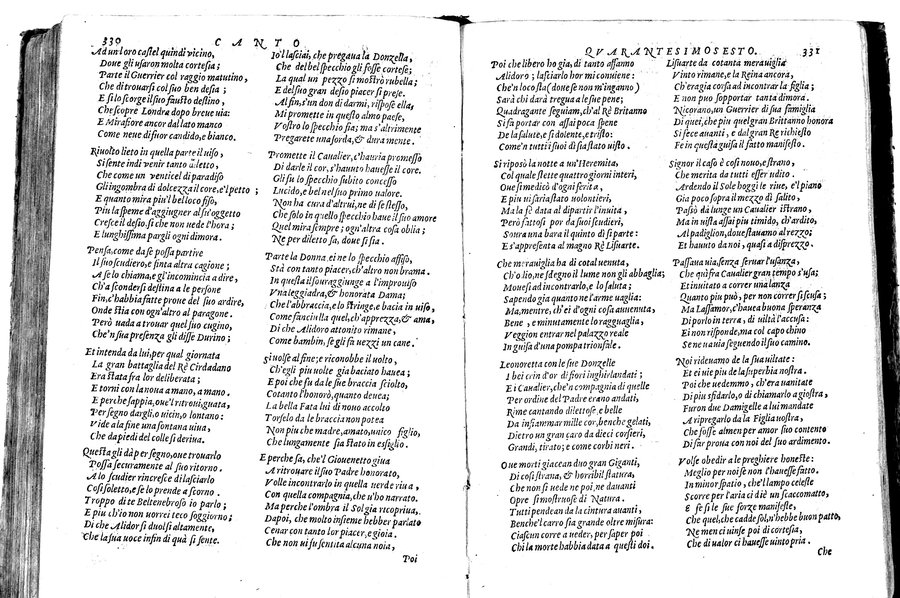 330 CANTO
Ad un loro castel quindi vicino,
Doue gli usaron molta cortesia;
Parte il Guerrier col raggio matutino,
Che di trouarsi col suo ben desia;
E si lo scorge il suo fausto destino,
Che scopre Londra dopo breue uia:
E Mirafiore ancor da l'altro manco
Come neue di fuor candido, e bianco.
Riuolto lieto in quella parte il uiso,
Si sente indi venir tanto diletto,
Che come un venticel di paradiso
Gl'ingombra di dolcezza il core, e'l petto;
E quanto mira piu'l bel loco fiso,
Piu la speme d'aggiugner al su'oggetto
Cresce il desio, si che non uede l'hora;
E lunghissima pargli ogni dimora.
Pensa, come da se possa partire
Il suo scudiero, e finta altra cagione;
A se lo chiama, e gl'incomincia a dire,
Ch'a scondersi destina a le persone
Fin, c'habbia fatte proue del suo ardire,
Onde stia con ogn'altro al paragone.
Però uada a trouar quel suo cugino,
Che'n sua presenza gli disse Durino;
Et intenda da lui, per qual giornata
La gran battaglia del Rè Cirdadano
Era stata fra lor deliberata;
E torni con la noua a mano, a mano.
E perche sappia, oue'l ritroui, guata,
Per segno dargli, o uicin, o lontano:
Vide a la fine una fontana uiua,
Che da piedi del colle si deriua.
Questa gli dà per segno, oue trouarlo
Possa securamente al suo ritorno.
A lo scudier rincresce di lasciarlo
Cosi soletto, e se lo prende a scorno.
Troppo di te Beltenebroso io parlo;
E piu ch'io non uorrei teco soggiorno;
Di che Alidor si duol si altamente,
Che la sua uoce infin di quà si sente.
Io'l lasciai, che pregaua la Donzella,
Che del bel specchio gli fosse cortese;
La qual un pezzo si mostrò rubella;
E del suo gran desio piacer si prese.
Al fin, s'un don di darmi, rispose ella,
Mi promette in questo almo paese,
Vostro lo specchio fia; ma s'altrimente
Pregarete una sorda, & dura mente.
Promette il Caualier, c'hauria promesso
Di darle il cor, s'hauuto hauesse il core.
Gli fu lo specchio subito concesso
Lucido, e bel nel suo primo ualore.
Non ha cura d'altrui, ne di se stesso,
Che solo in quello specchio haue il suo amore
Quel mira sempre; ogn'altra cosa oblia;
Ne per diletto sa, doue si sia.
Parte la Donna, ei ne lo specchio affiso,
Stà con tanto piacer, ch'altro non brama.
In questa il souraggiunge a l'improuiso
Vna leggiadra, & honorata Dama;
Che l'abbraccia, e lo stringe, e bacia in uiso,
Come fanciulla quel, ch'apprezza, & ama,
Di che Alidoro attonito rimane,
Come bambin, se gli fa uezzi un cane.
Si uolse al fine; e riconobbe il uolto,
Ch'egli piu uolte gia baciato hauea;
E poi che fu da le sue braccia sciolto,
Cotanto l'honorò, quanto deuea;
La bella Fata lui di nouo accolto
Torselo da le braccia non potea
Non piu che madre, amato, unico figlio,
Che lungamente sia stato in essiglio.
E perche sa, che'l Giouenetto giua
A ritrouare il suo Padre honorato,
Volle incontrarlo in quella uerde riua,
Con quella compagnia, che u'ho narrato.
Ma perche l'ombra il Sol gia ricopriua,
Dapoi, che molto insieme hebber parlato
Cenar con tanto lor piacer, e gioia.
Che non ui fu sentita alcuna noia,
Poi
QVARANTESIMOSESTO. 331
Poi che libero ho gia, di tanto affanno
Alidoro; lasciarlo hor mi conuiene:
Che'n loco sta (doue se non m'inganno)
Sarà chi darà tregua a le sue pene;
Quadragante seguiam, ch'al Rè Britanno
Si fa portar con assai poca spene
De la salute, e si dolente, e tristo:
Come'n tutti suoi dì sia stato uisto.
Si riposò la notte a un'Heremita,
Col qual stette quattro giorni interi,
Oue si medicò d'ogni ferita,
E piu ui saria stato uolontieri,
Ma la fè data al dipartir l'inuita,
Però tolto sol da suoi scudieri,
Soura una bara il quinto dì si parte:
E s'appresenta al magno Rè Lisuarte.
Che merauiglia ha di cotal uenuta,
Ch'olio, ne sdegno il lume non gli abbaglia;
Mouesi ad incontrarlo, e lo saluta;
Sapendo già quanto ne l'arme uaglia:
Ma, mentre, ch'ei d'ogni cosa auuenuta,
Bene, e minutamente lo ragguaglia,
Veggion entrar nel palazzo reale
In guisa d'una pompa trionfale.
Leonoretta con le sue Donzelle
I bei crin d'or di fiori inghirlandati;
E i Caualier, che'n compagnia di quelle
Per ordine del Padre erano andati,
Rime cantando dilettose, e belle
Da infiammar mille cor, benche gelati,
Dietro un gran caro da dieci corsieri,
Grandi, tirato; e come corbi neri.
Oue morti giacean duo gran Giganti,
Di si strana, & horribil statura,
Che non si uede ne poi, ne dauanti
Opre si mostruose di Natura.
Tutti pendean da la cintura auanti,
Benche'l carro sia grande oltre misura:
Ciascun corre a ueder, per saper poi
Chi la morte habbia data a questi doi.
Lisuarte da cotanta merauiglia
Vinto rimane, e la Reina ancora,
Ch'era gia corsa ad incontrar la figlia;
E non puo sopportar tanta dimora.
Nicorano, un Guerrier di sua famiglia
Di quei, che piu quel gran Britanno honora
Si fece auanti, e dal gran Re richiesto
Fe in questa guisa il fatto manifesto.
Signor il caso è cosi nouo, e strano,
Che merita da tutti esser udito.
Ardendo il Sole hoggi le riue, e'l piano
Gia poco sopra il mezzo dì salito,
Passò da lunge un Caualier istrano,
Ma in uista assai piu timido, ch'ardito,
Al padiglion, doue stauamo al rezzo;
Et hauuto da noi, quasi a disprezzo.
Passaua uia, senza seruar l'usanza,
Che quà fra Caualier gran tempo s'usa;
Et inuitato a correr una lanza
Quanto piu può, per non correr si scusa;
Ma Lassamor, c'hauea buona speranza
Di porlo in terra, di uiltà l'accusa:
Ei non risponde, ma col capo chino
Se ne uauia seguendo il suo camino.
Noi rideuamo de la sua uiltate:
Et ei uie piu de la superbia nostra.
Poi che uedemmo, ch'era uanitate
Di piu sfidarlo, o di chiamarlo a giostra,
Furon due Damigelle a lui mandate
A ripregarlo da la Figlia uostra,
Che fosse almen per amor suo contento
Di far proua con noi del suo ardimento.
Volse obedir a le preghiere honeste:
Meglio per noi se non l'hauesse fatto.
In minor spatio, che'l lampo celeste
Scorre per l'aria ci diè un scaccomatto,
E se fe le sue forze manifeste,
Che quel, che cadde sol, n'hebbe buon patto,
Ne men ci uinse poi di cortesia,
Che di ualor ci hauesse uinto pria.
Che